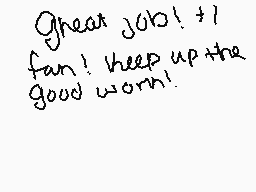 great job! +1
fan! keep up the
good work!